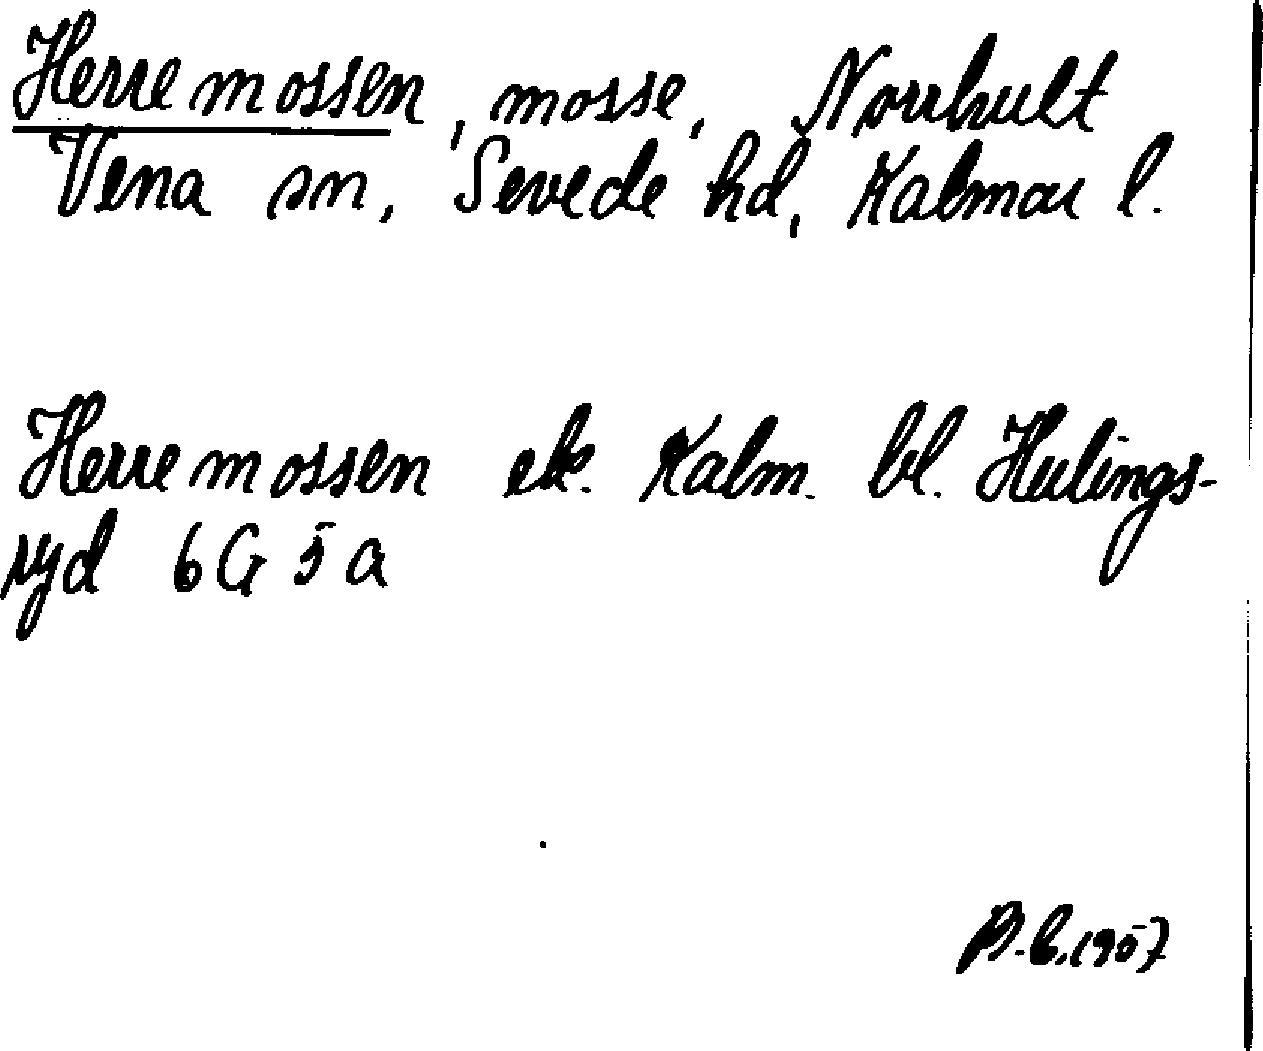 Herremossen, mosse, Norrhult
Vena sn, Sevede hd, Kalmar l.
Herremossen ek. Kalm. bl. Hulings-
ryd 6G 5a
1957